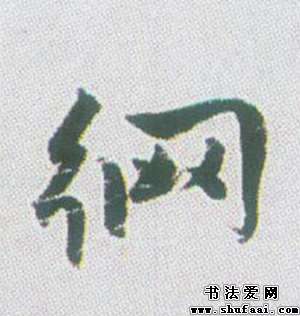 網
书法爱网
www.shufaai.com